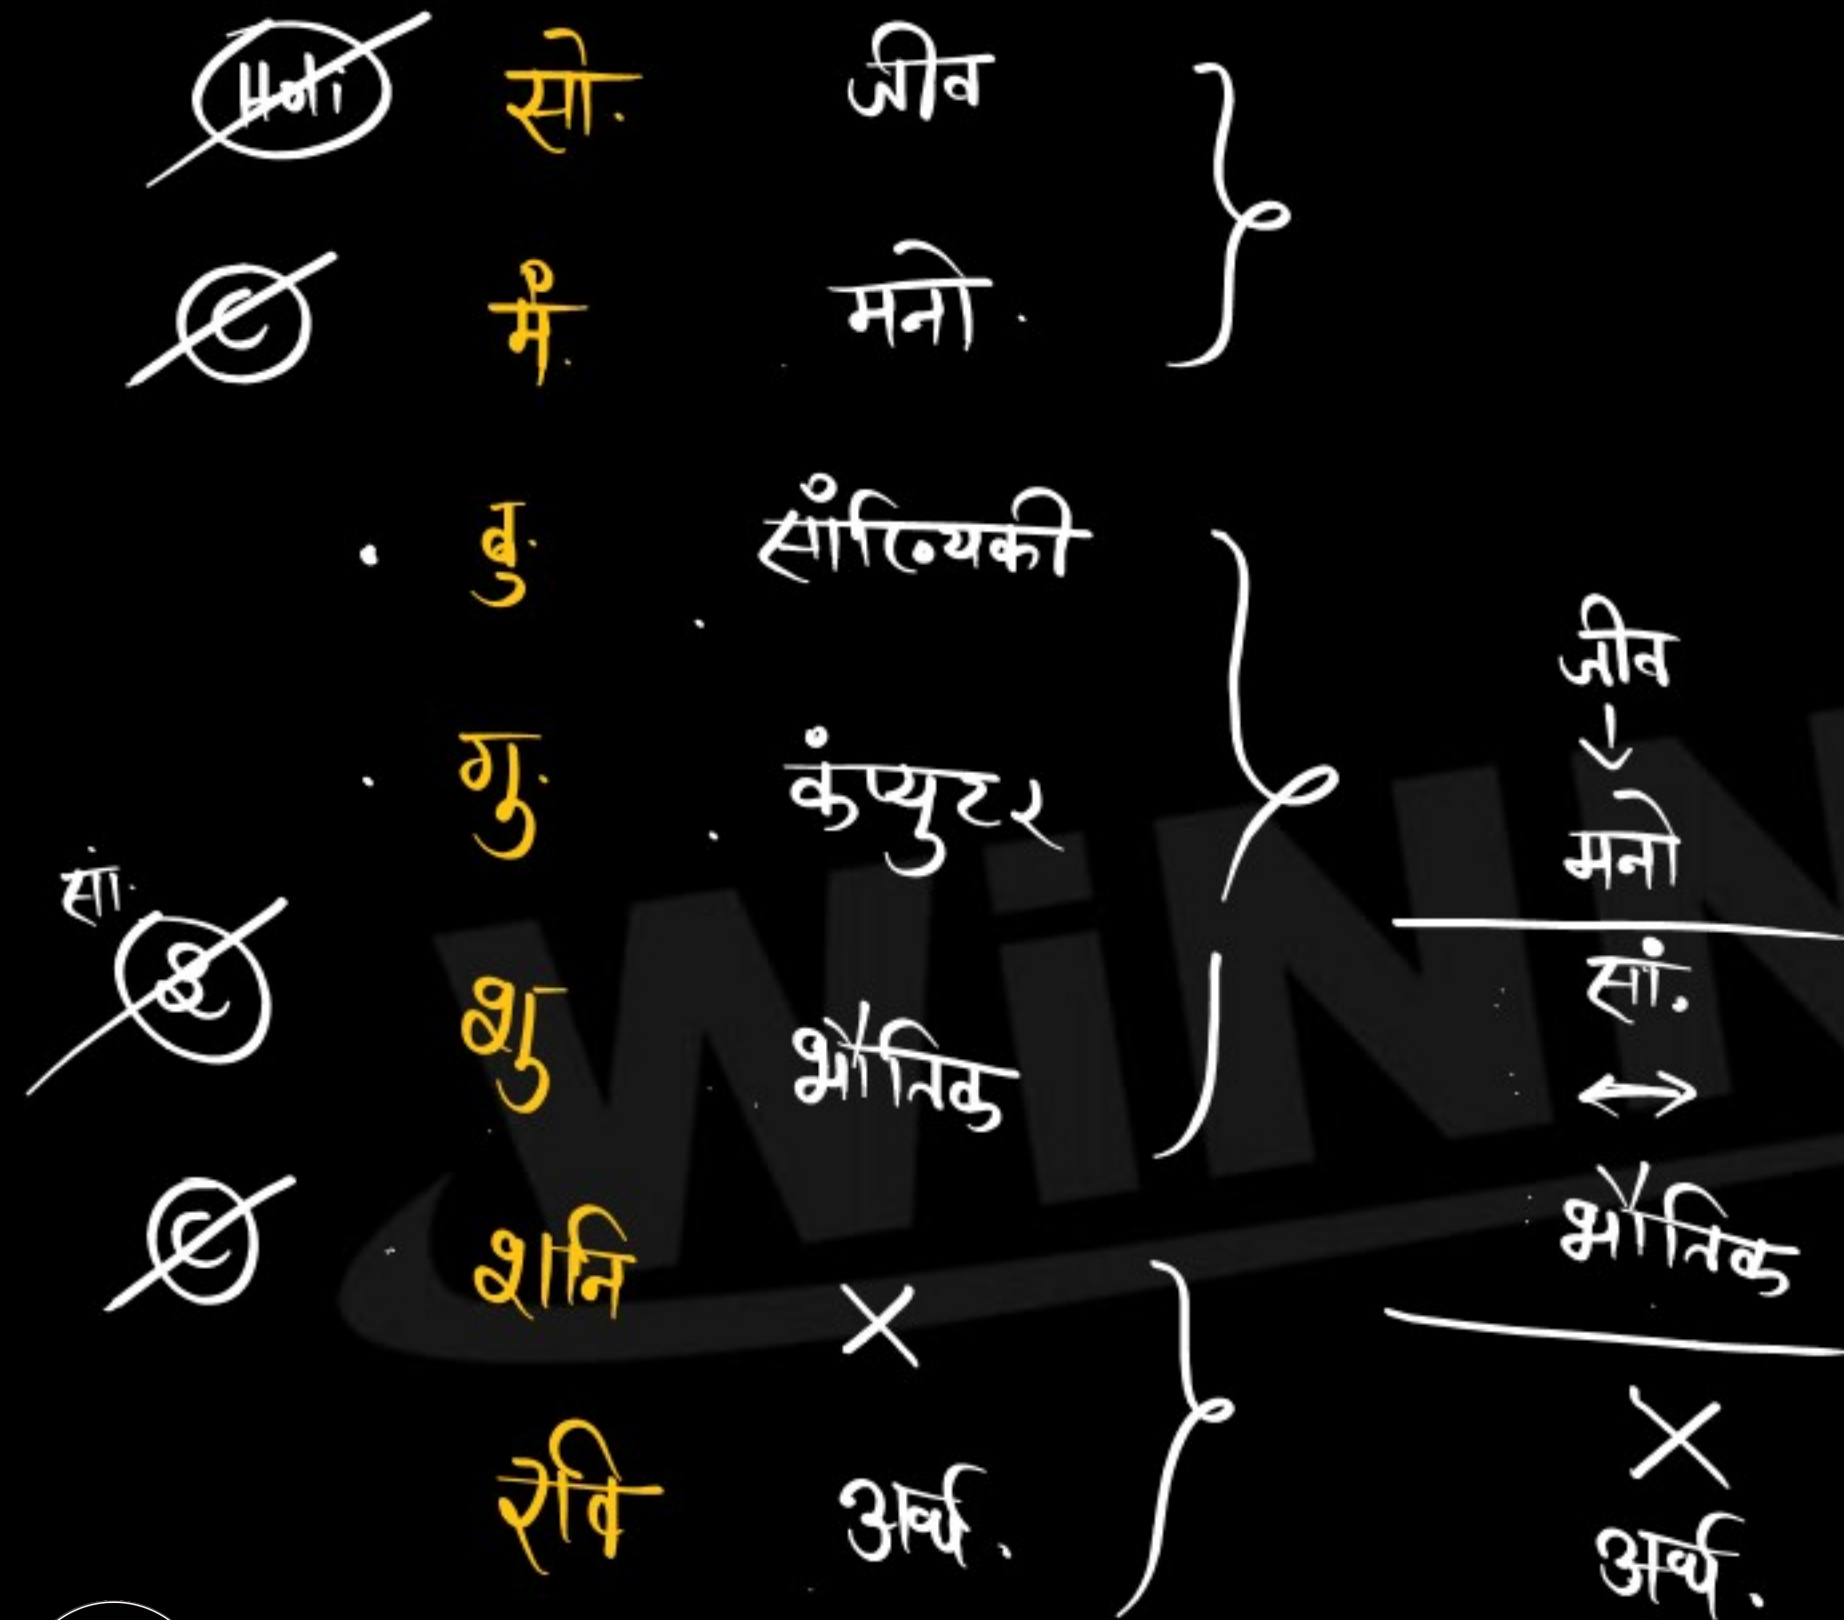 Holi सो. जीव
C मं. मनो.
बु. सांख्यिकी
गु. कंप्युटर
सां.
शु भौतिक
C शनि ×
रवि अर्थ.
जीव
↓
मनो
सां.
↔
भौतिक
×
अर्थ.
WiNN